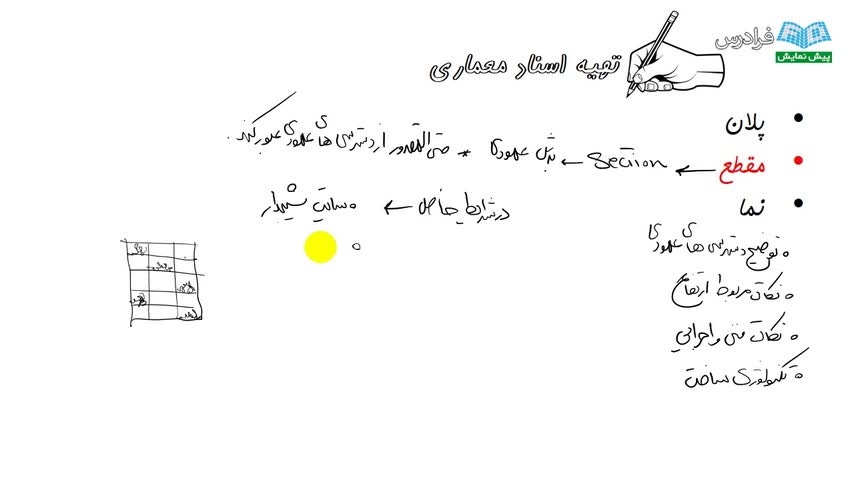 فرادرس
پیش نمایش
تهیه اسناد معماری
• پلان
• مقطع ← Section ← برش عمودی * حتی المقدور از دسترسی های عمودی عبور کند.
• نما
در شرایط خاص ← سایت شیبدار
توضیح دسترسی های عمودی
نکات مربوط ارتفاع
نکات فنی و اجرایی
تکنولوژی ساخت